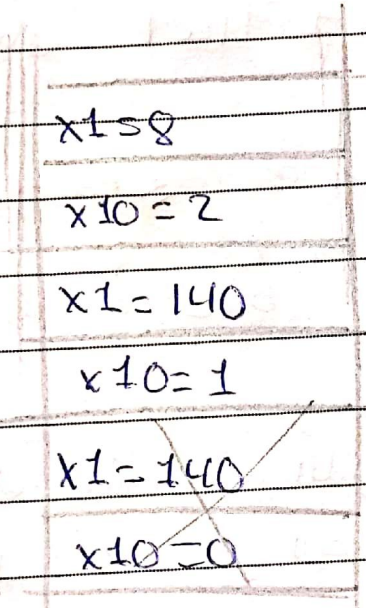 x1=8
x10=2
x1=140
x10=1
x1=140
x10=0